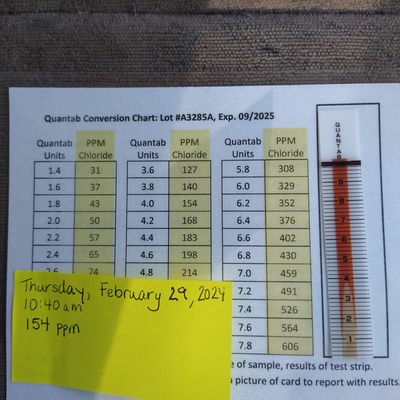 Quantab Conversion Chart: Lot #A3285A, Exp. 09/2025
Quantab Units PPM Chloride Quantab Units PPM Chloride Quantab Units PPM Chloride
1.4 31 3.6 127 5.8 308
1.6 37 3.8 140 6.0 329
1.8 43 4.0 154 6.2 352
2.0 50 4.2 168 6.4 376
2.2 57 4.4 183 6.6 402
2.4 65 4.6 198 6.8 430
2.6 74 4.8 214 7.0 459
7.2 491
7.4 526
7.6 564
7.8 606
QUANTAB
9
8
7
6
5
4
3
2
1
Thursday, February 29, 2024
10:40 am
154 ppm
e of sample, results of test strip.
a picture of card to report with results.